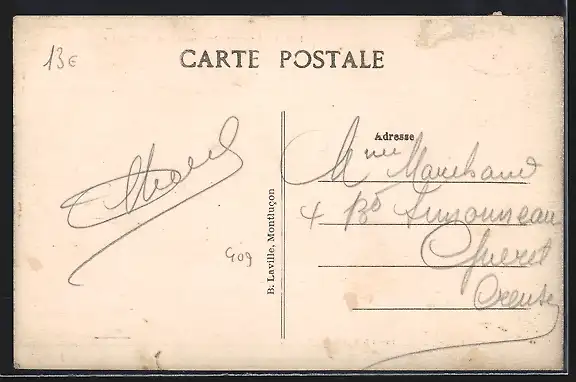 13€
CARTE POSTALE
Adresse
Mme Marchand
4 Bd
Gueret
Creuse
409
B. Laville, Montluçon